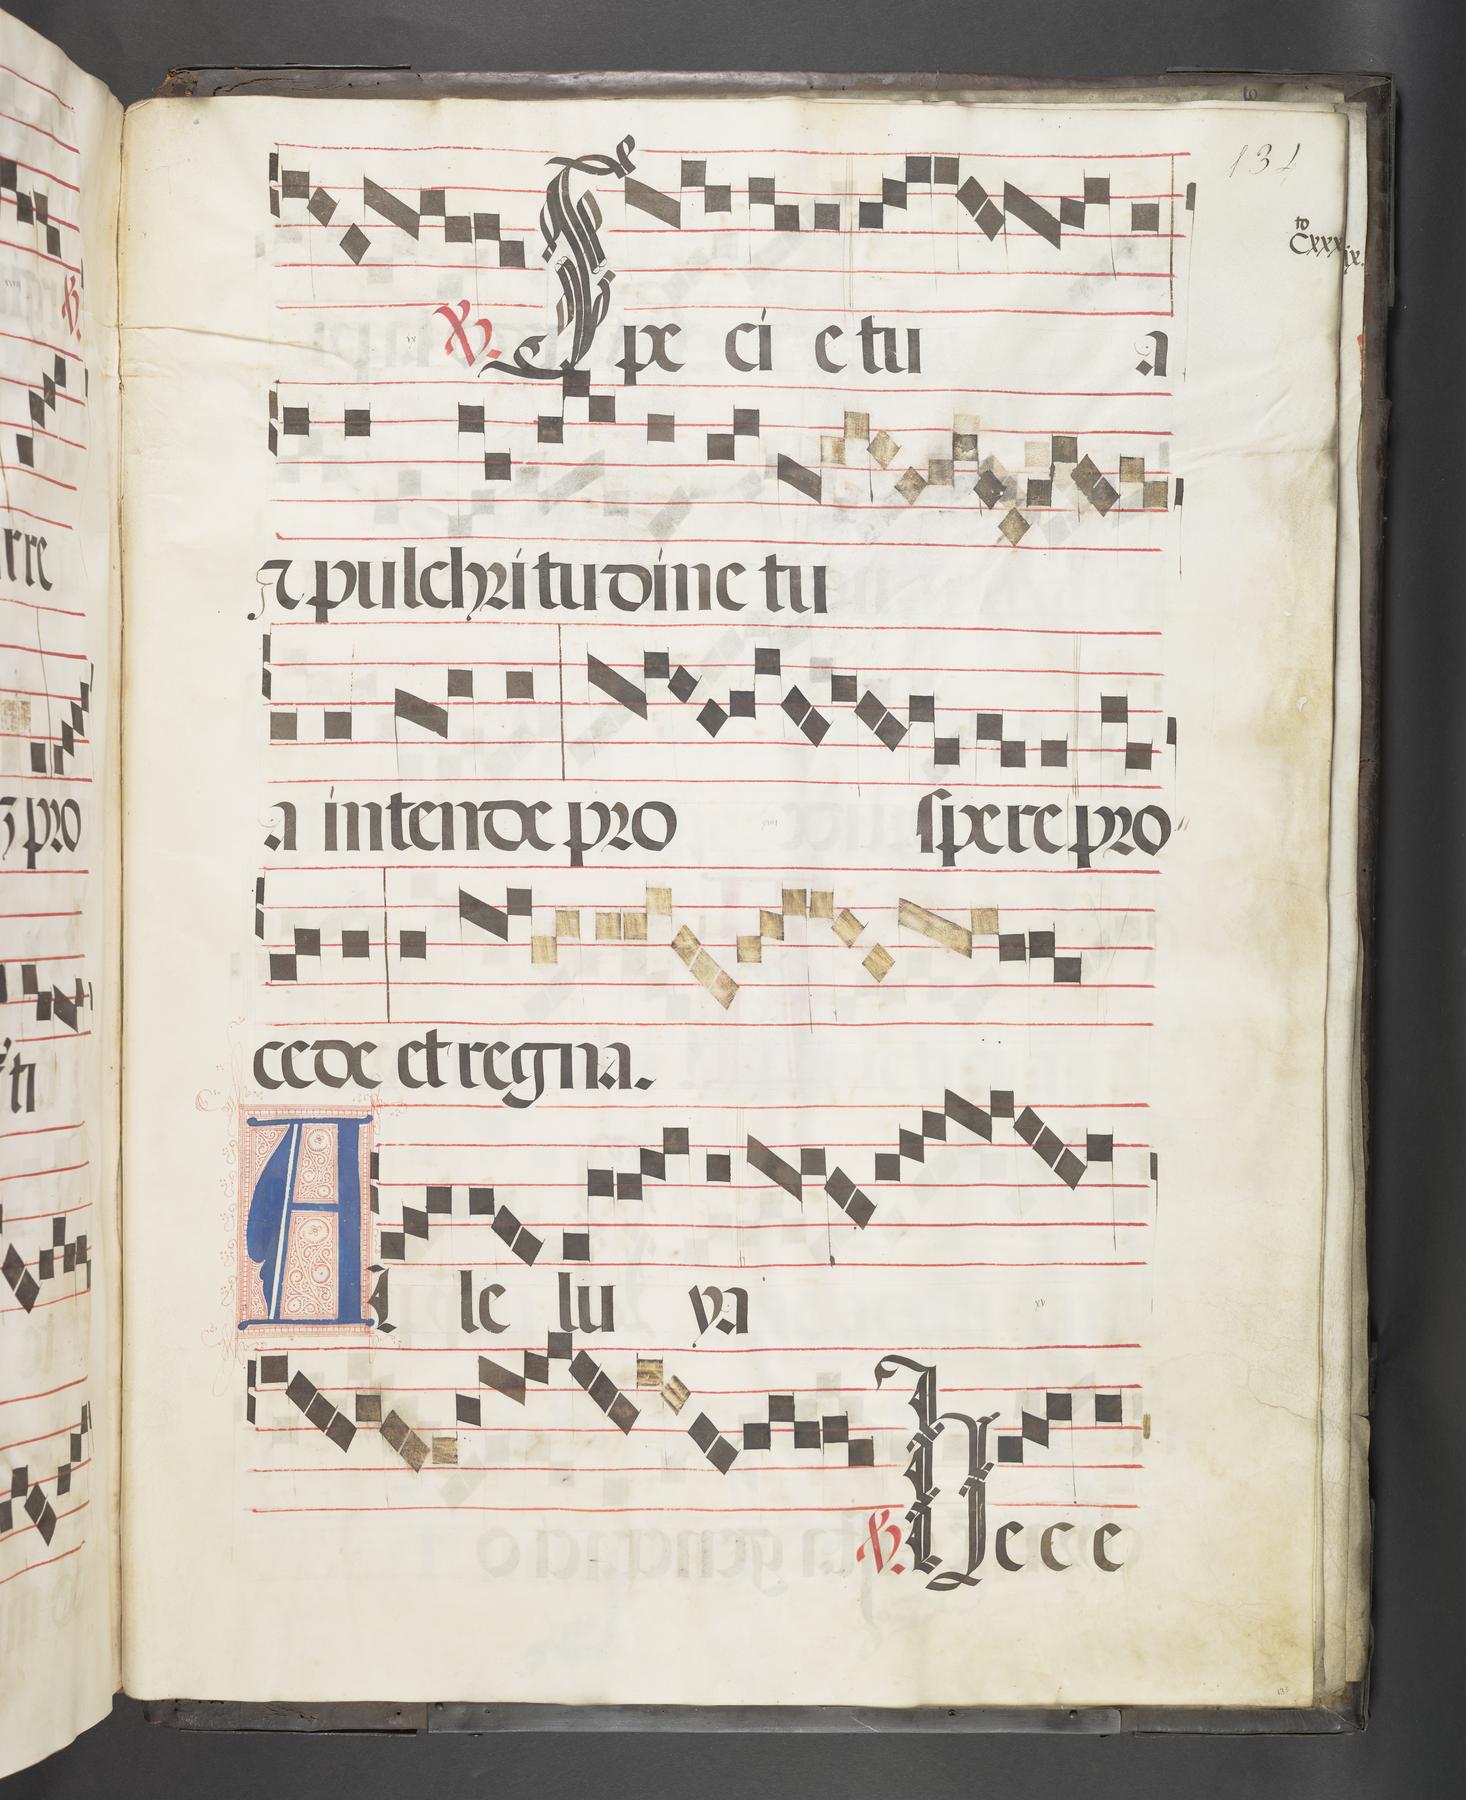 134
to
Cxxxix.
℣. Spe ci e tu a
⁊ pulchritudine tu
a intende pro spere pro
cede et regna.
Al le lu ya
℣. Hec e e
rre
ʒ pro
ti